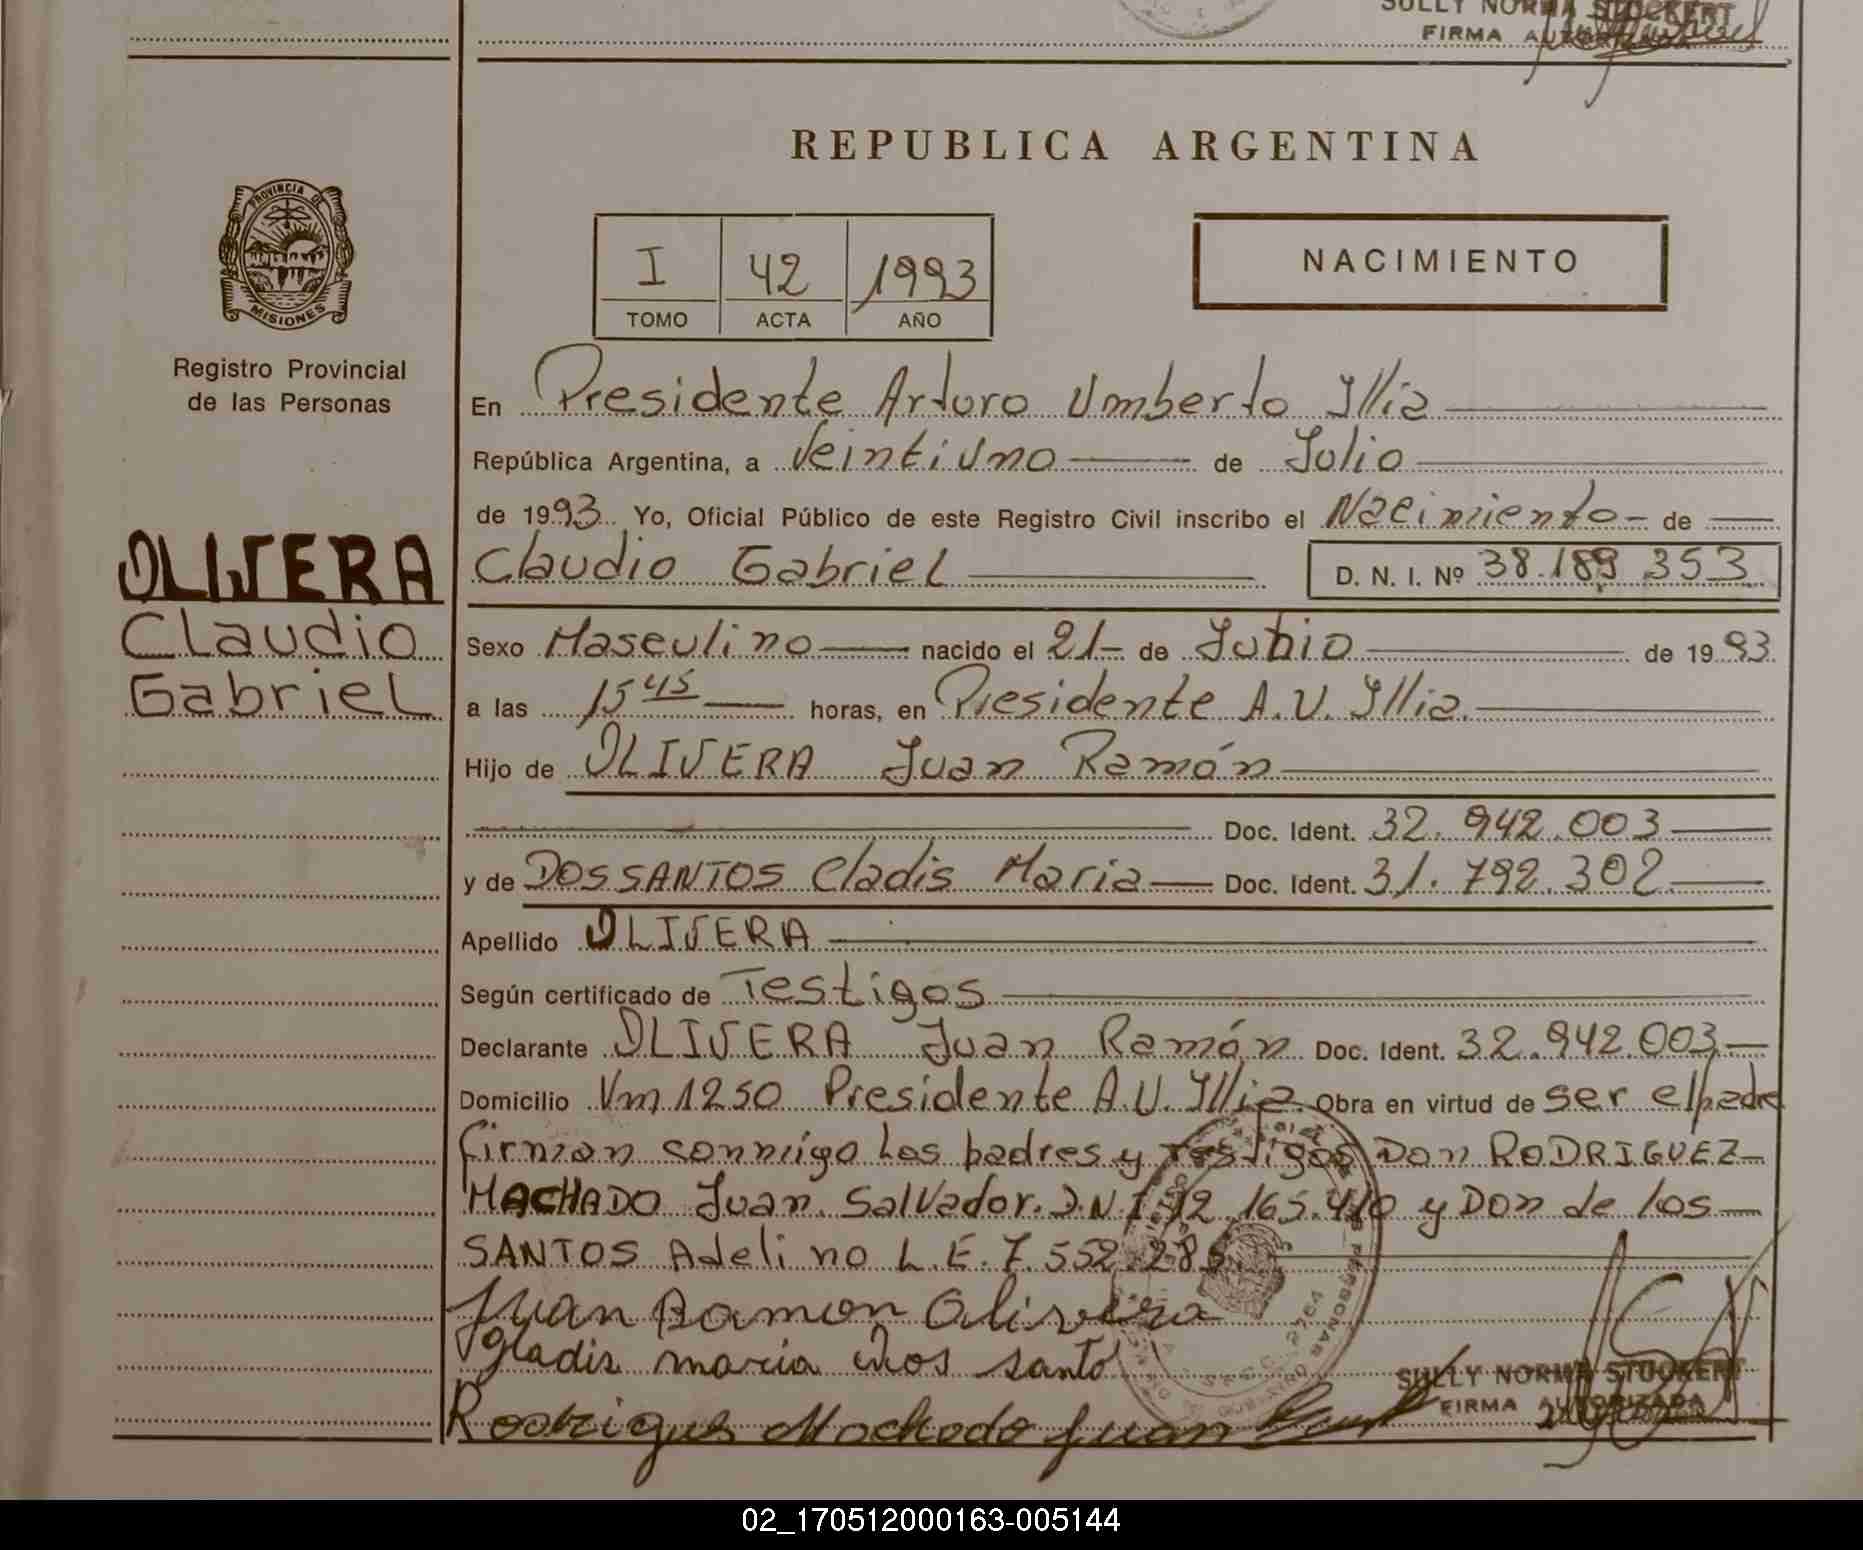 SULLY NORMA STOCKERT
FIRMA AUTORIZADA
REPUBLICA ARGENTINA
PROVINCIA DE
MISIONES
Registro Provincial
de las Personas
I 42 1993
TOMO ACTA AÑO
NACIMIENTO
En Presidente Arturo Umberto Illia
República Argentina, a Veintiuno de Julio
de 1993 Yo, Oficial Público de este Registro Civil inscribo el Nacimiento de
OLIVERA
Claudio
Gabriel
Claudio Gabriel D. N. I. Nº 38.189.353
Sexo Masculino nacido el 21 de Junio de 1993
a las 15 45 horas, en Presidente A.U. Illia.
Hijo de OLIVERA Juan Ramón
Doc. Ident. 32.942.003
y de DOSSANTOS Cladis Maria Doc. Ident. 31.792.302
Apellido OLIVERA
Según certificado de Testigos
Declarante OLIVERA Juan Ramón Doc. Ident. 32.942.003
Domicilio Vm 1250 Presidente A.U. Illia. Obra en virtud de ser el padre
firman conmigo los padres y testigos Don RODRIGUEZ
MACHADO Juan Salvador. D.N.I. 12.165.410 y Don de los
SANTOS Adelino L.E. 7.552.285
Juan Ramon Olivera
Gladis maria dos santo
SULLY NORMA STOCKERT
FIRMA AUTORIZADA
Rodrigues Machado Juan
02_170512000163-005144